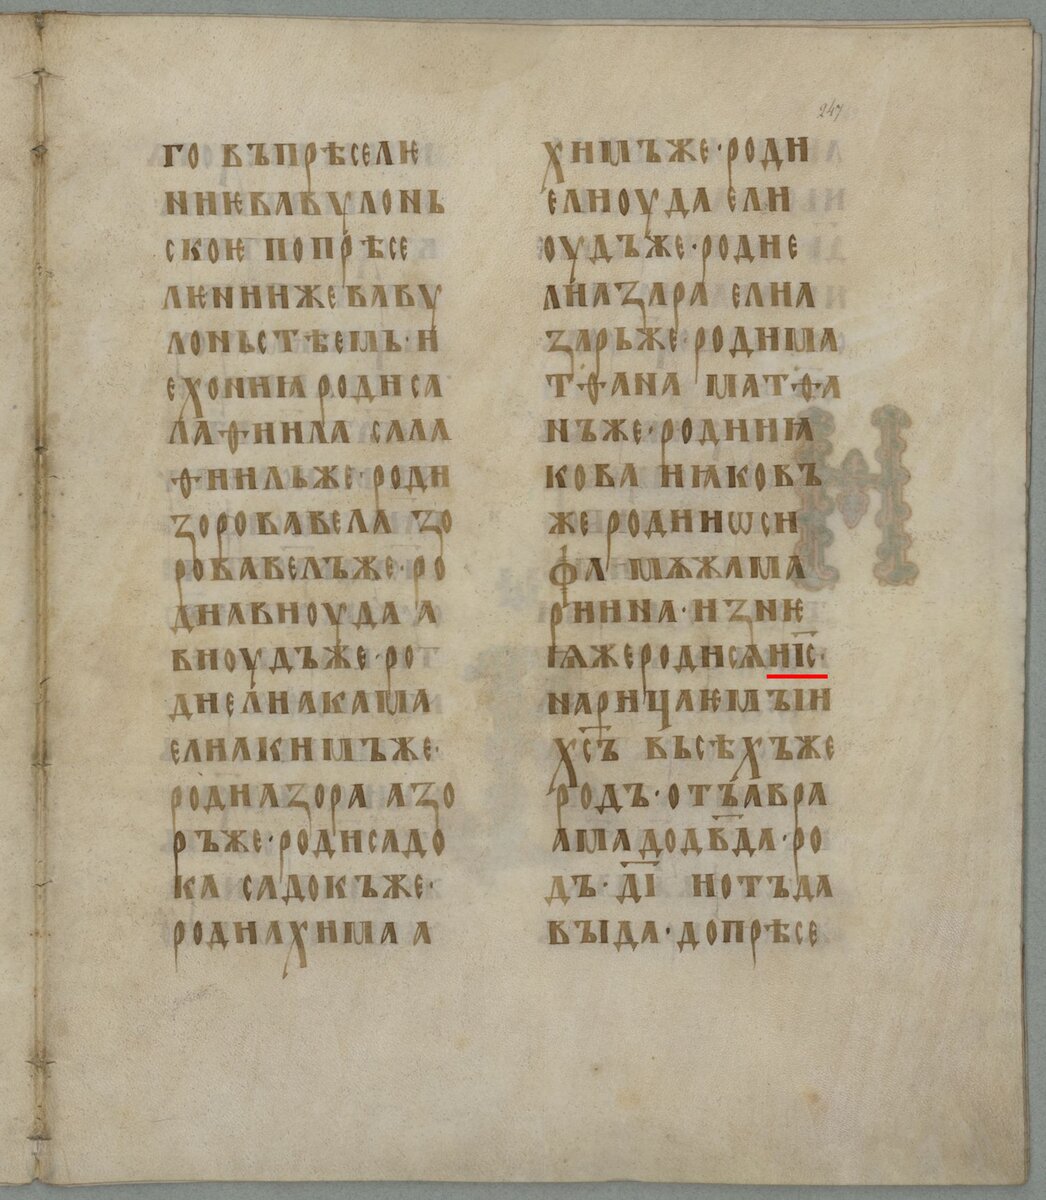 247
го въпрѣселю
ниѥвавѵлонь
скоѥ попрѣсе
лѥнииже вавѵ
лоньстѣемь· и
ехониꙗ родиса
лаѳиила сала
ѳиилъже· роди
зоровавела зо
ровавелъже· ро
диавиоуда а
виоудъже· ро
диелиакима
елиакимъже·
родиазора азо
ръже· родисадо
ка садокъже·
родиахима а
химъже· роди
елиоуда ели
оудъже· родие
лиазара елиа
заръже· родима
тѳана матѳа
нъже· родииꙗ
кова иꙗковъ
же родииѡси
фа мѫжама
риина· изнѥ
ѩжеродисѧиі҃с·
нарицаѥмъіи
хс҃ъ вьсѣхъже
родъ· отъавра
амадодв҃да· ро
дъ· ді҃ иотъда
въіда· допрѣсе